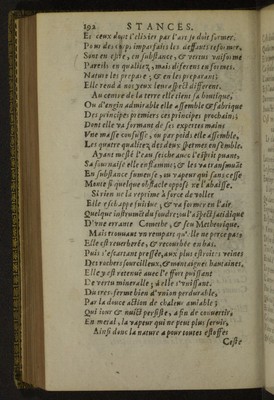 192 STANCES.
Et ceux dont l'elixir par l'art se doit former.
Sont en estre, en substance, & vertus
Pareils en qualitez, mais different en formes.
Nature les prepare; & en les preparant;
Elle rend à nos yeux leur aspect different.
Au centre de la terre elle tient sa boutique,
Ou d'engin admirable elle assemble & fabrique
Des principes premiers ces principes prochains;
Dont elle va formant de ses expertes mains
Une masse confusse, ou par poids elle assemble,
Les quatre qualitez des deux spermes ensemble.
Ayant meslé l'eau seiche avec l'esprit puant,
Sa fournaise elle enflamme; & les va
En substance fumeuse, ou vapeur qui sans cesse
Monte si quelque obstacle opposé ne l'abaisse.
Si rien ne la reprime à force de voller
Elle eschappe fuitive, & va formér en l'air.
Quelque instrumēt du foudre; sur l'aspect fatidique
D'une errante Comette, & feu Metheorique.
Mais trouuant un rempart qu'elle ne perce pas,
Elle est reuerberée, & recourbée en bas.
Puis s'escartant pressée, aux plus estroites veines
Des rochers sourcilleux, & montaignes hautaines,
Elle y est retenuë avec l'effort puissant
De vertu minerale; d'elle s'unissant.
D'un tres-ferme lien d'union perdurable,
Par la douce action de chaleur amiable;
Qui iour & nuict persiste, afin de conuertir,
En metal, la vapeur qui ne peut plus sortir,
Ainsi donc la nature a pour toutes estoffes
Ceste